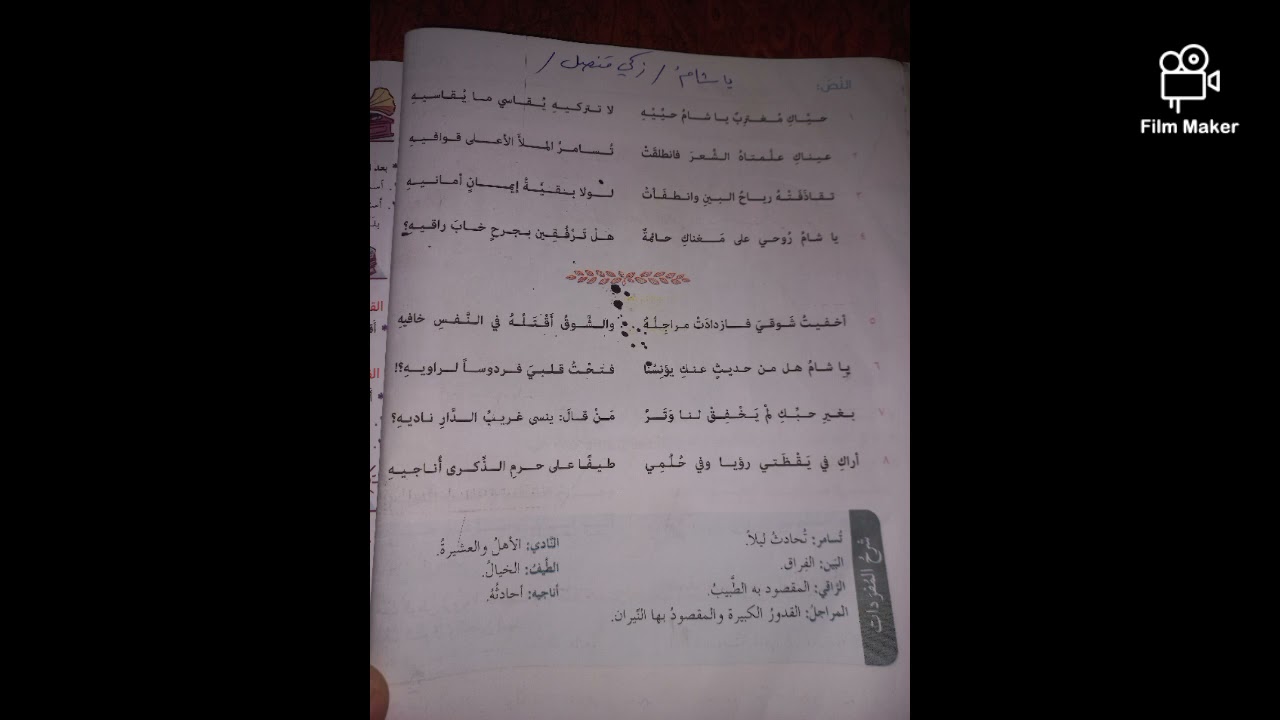 يا شام / زكي قنصل /
النّص:
١ حيّاكِ مُغتربٌ يا شامُ حيّيْهِ لا تتركيهِ يُقاسي ما يُقاسيهِ
٢ عيناكِ علّمتاهُ الشّعرَ فانطلقَتْ تُسامرُ الملأَ الأعلى قوافيهِ
٣ تقاذَفَتْهُ رياحُ البينِ وانطفأتْ لولا بقيّةُ إيمانٍ أمانيهِ
٤ يا شامُ رُوحي على مَغناكِ حائمةٌ هلْ تَرْفُقِين بجرحٍ خابَ راقيهِ؟
٥ أخفيتُ شَوقيَ فازدادَتْ مراجلُهُ والشّوقُ أقْتَلُهُ في النَّفسِ خافيهِ
٦ يا شامُ هل من حديثٍ عنكِ يؤنِسُنا فتحْتُ قلبيَ فردوساً لراويهِ؟!
٧ بغيرِ حبّكِ لمْ يَخْفِقْ لنا وَتَرٌ مَنْ قالَ: ينسى غريبُ الدَّارِ ناديهِ؟
٨ أراكِ في يَقْظَتي رؤيا وفي حُلُمِي طيفًا على حرمِ الذِّكرى أُناجيهِ
شرحُ المُفردات
تُسامر: تُحادثُ ليلاً.
البَين: الفِراق.
الرّاقي: المقصود به الطَّبيبُ.
المراجلُ: القدورُ الكبيرة والمقصودُ بها النّيران.
النّادي: الأهلُ والعشيرةُ.
الطّيفُ: الخيالُ.
أناجيه: أحادثُهُ.
Film Maker